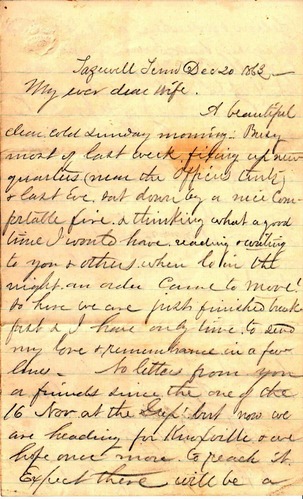 Tazewell Tenn Dec 20 1863
My ever dear Wife.
A beautiful
clear cold Sunday morning. Busy
most of last week, fixing up new
quarters (near the Officers
& last Eve. sat down by a nice com-
fortable fire, & thinking what a good
time I wont have, reading & writing
to you & others. when lo in the
night an order came to move!
So here we are just finished break-
fast & I have only time to send
my love & remembrance in a few
lines. No letters from you
or friends since the one of the
16 Nov at the Gap. but now we
are heading for Knoxville & we
hope once more to reach it.
Expect there will be a